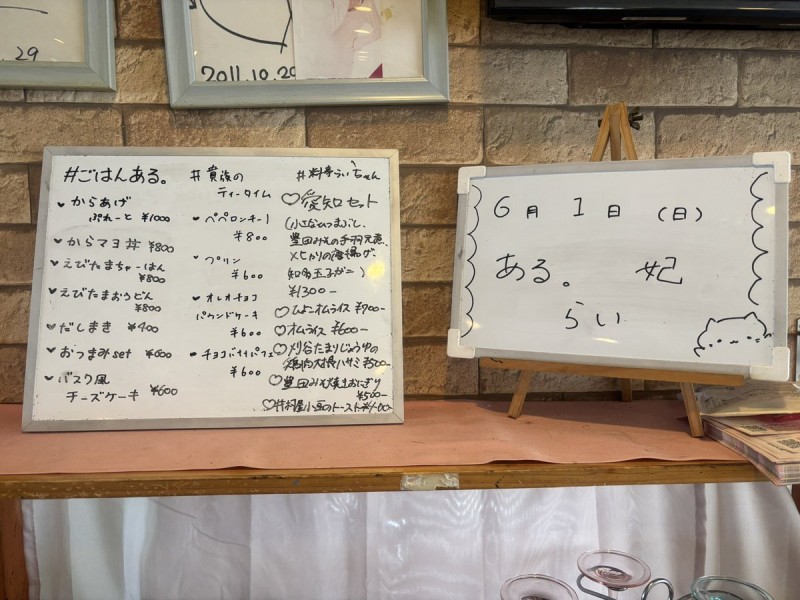 .29
2011.10.29
#ごはんある。
・からあげ
ぷれーと ¥1000
・からマヨ丼 ¥800
・えびたまちゃーはん
¥800
・えびたまおうどん
¥800
・だしまき ¥400
・おつまみset ¥600
・バスク風
チーズケーキ ¥600
# 貴族の
ティータイム
・ペペロンチーノ
¥800
・プリン
¥600
・オレオチョコ
パウンドケーキ
¥600
・チョコバナナパフェ
¥600
#料亭らいちゃん
♡愛知セット
豊田みその手羽元煮、
メヒカリの唐揚げ、
¥1300-
♡ひよこオムライス ¥700-
♡オムライス ¥600-
♡刈谷たまりじょうゆの
¥500-
♡豊田みそ焼きおにぎり
¥500-
小豆のトースト ¥400-
6月 1日 (日)
ある。 妃
らい